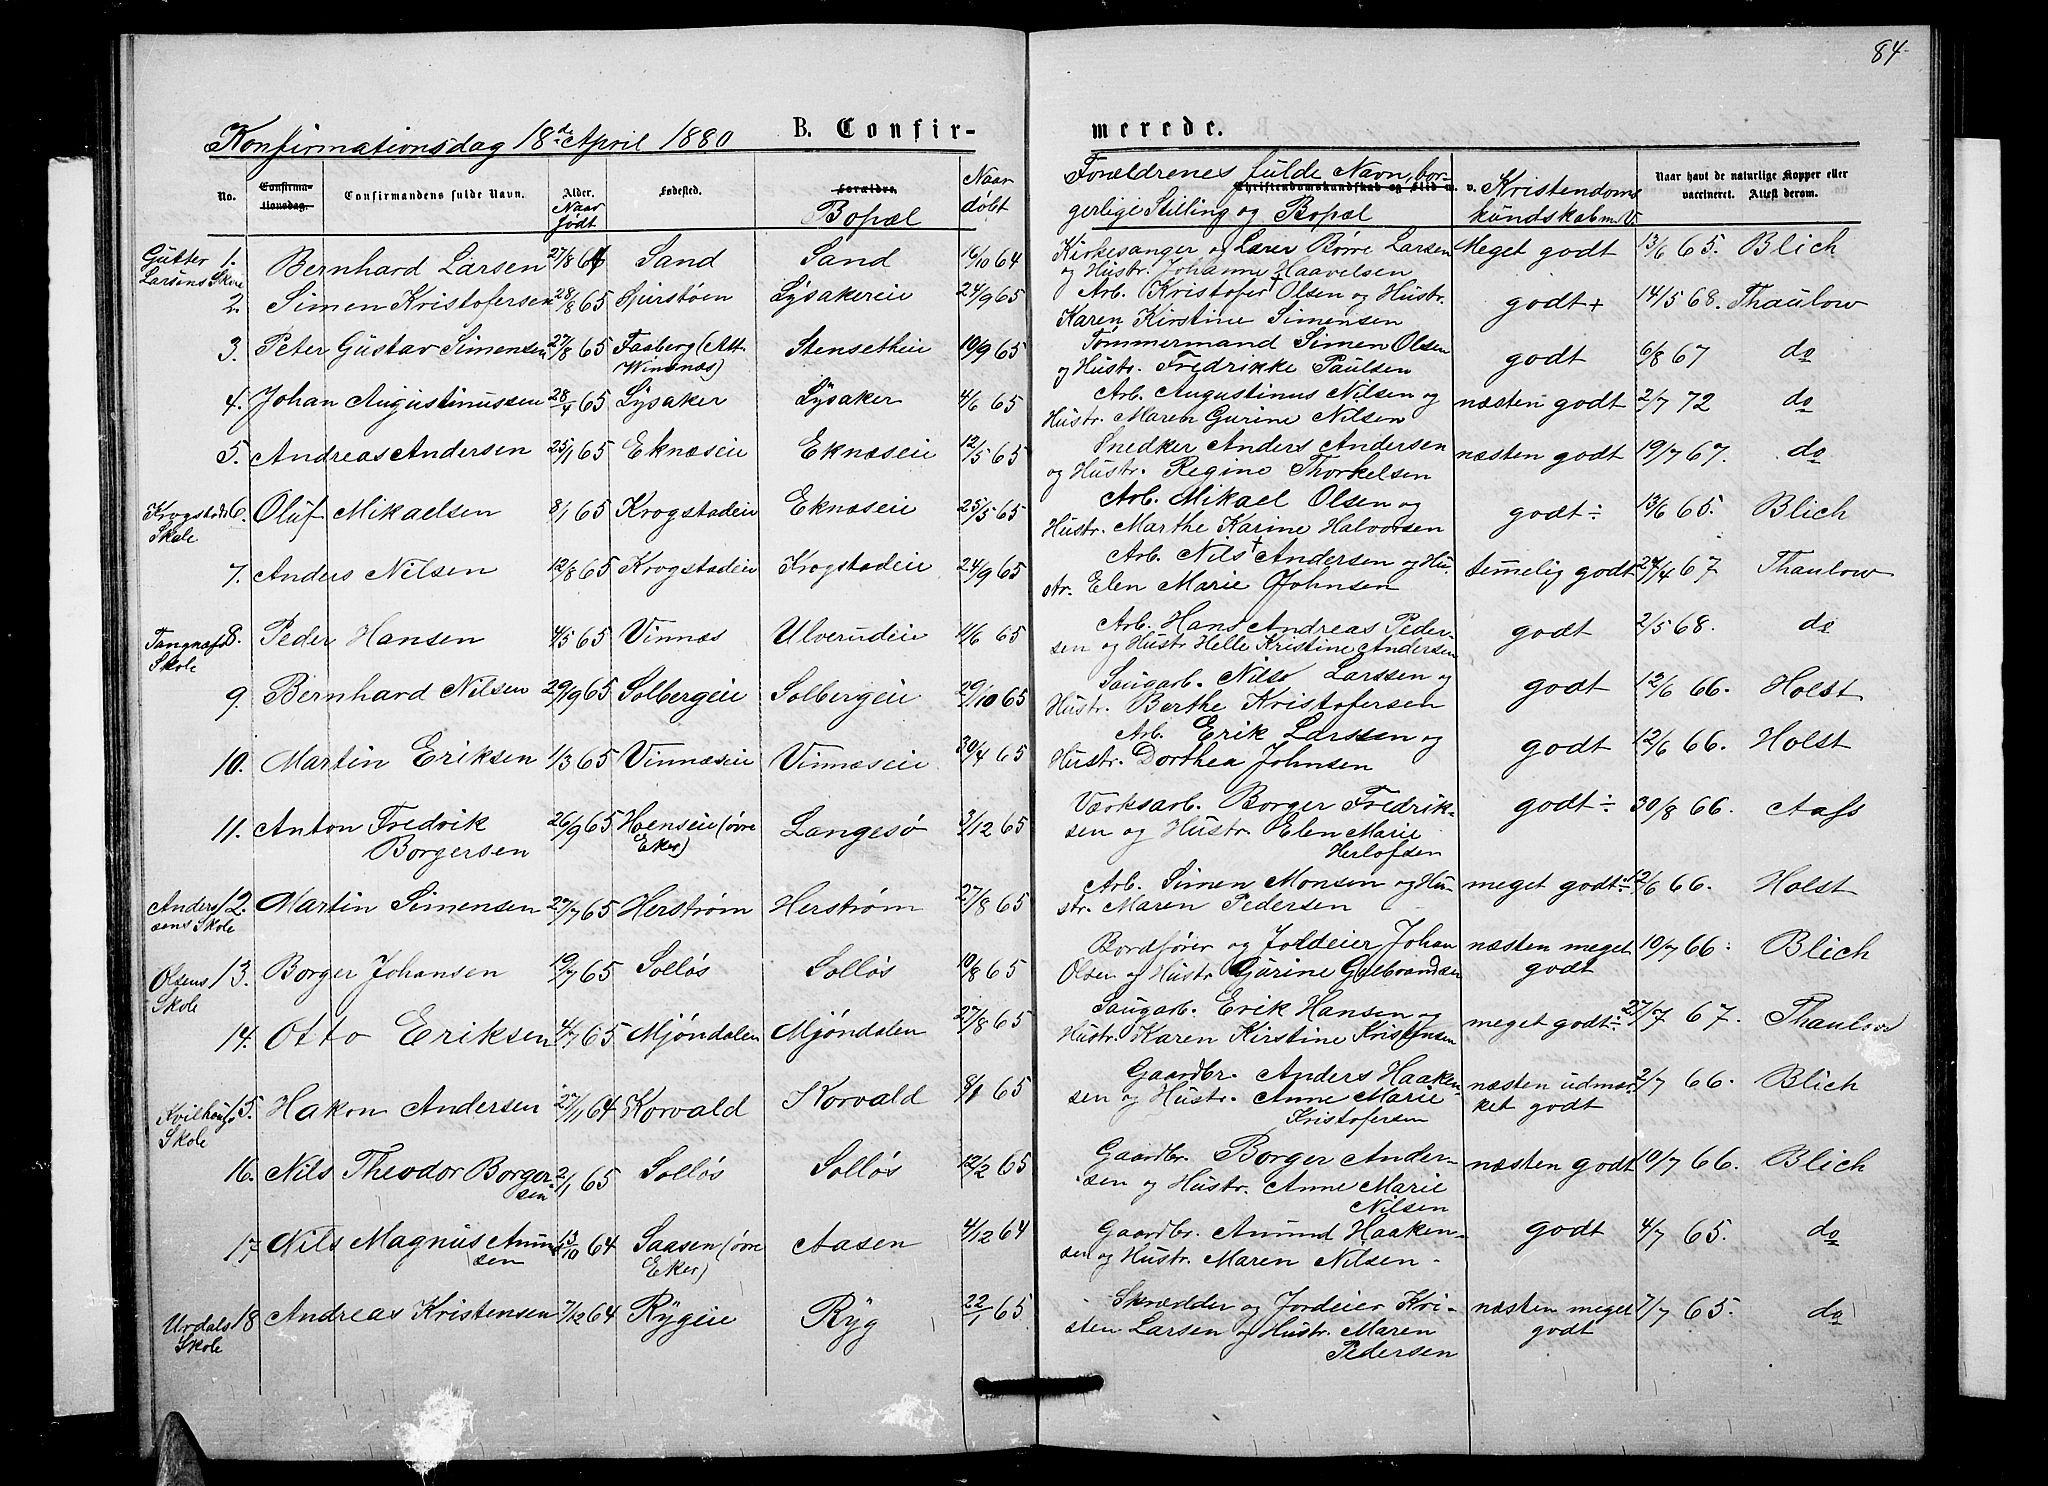 84
Konfirmationsdag 18de April 1880
B. Confir-
merede.
No.
Confirma-
tionsdag.
Confirmandens fulde Navn.
Alder.
Naar
født
Fødested.
Forældre.
Bopæl
Naar
døbt
Forældrenes fulde Navn, bor-
Christendomskundskab og Flid m. v.
gerlige Stilling og Bopæl
Kristendoms
kundskab m. V.
Naar havt de naturlige Kopper eller
vaccineret. Attest derom.
Gutter 1. Bernhard Larsen 27/8 64 Sand Sand 16/10 64 Kirkesanger og Lærer Børre Larsen Meget godt 13/6 65. Blich
Larsens Skole og Hustr. Johanne Haavelsen
2. Simen Kristofersen 28/8 65 Lysakereie 24/9 65 Arb. Kristofer † Olsen og Hustr. godt + 14/5 68. Thaulow
Karen Kirstine Simensen
3. Peter Gustav Simensen 27/8 65 Faaberg (Att. Stensetheie 10/9 65 Tømmermand Simen Olsen godt 6/8 67 do
Windnæs) og Hustr. Fredrikke Paulsen
4. Johan Augustinussen 28/4 65 Lysaker Lysaker 4/6 65 Arb. Augustinus Nilsen og næsten godt 2/7 72 do
Hustr. Maren Gurine Nilsen
5. Andreas Andersen 25/1 65 Eknæseie Eknæseie 12/5 65 Snedker Anders Andersen næsten godt 19/7 67. do
og Hustr. Regine Thorkelsen
Krogstads 6. Oluf Mikaelsen 8/1 65 Krogstadeie Eknæseie 25/5 65 Arb. Mikael Olsen og godt ÷ 13/6 65. Blich
Skole Hustr. Marthe Karine Halvorsen
7. Anders Nilsen 12/8 65 Krogstadeie Krogstadeie 24/9 65 Arb. Nils † Andersen og Hu- temelig godt 24/4 67 Thaulow
str. Elen Marie Johnsen
8. Peder Hansen 4/5 65 Vinnæs Ulverudeie 11/6 65 Arb. Hans Andreas Peder- godt 2/5 68. do
Skole sen og Hustr Helle Kristine Andersen
9. Bernhard Nilsen 29/9 65 Solbergeie Solbergeie 29/10 65 Saugarb. Nils Larssen og godt 12/6 66. Holst
Hustr. Berthe Kristofersen
10. Martin Eriksen 1/3 65 Vinnæseie Vinnæseie 30/4 65 Arb. Erik Larssen og godt 12/6 66. Holst
Hustr. Dorthea Johnsen
11. Anton Fredrik 26/9 65 Hoenseie (øvre Langesø 3/12 65 Værksarb. Borger Fredrik- godt ÷ 30/8 66. Aass
Borgersen Eker) sen og Hustr. Elen Marie
Herlofsen
Anders- 12. Martin Simensen 27/7 65 Herstrøm Herstrøm 27/8 65 Arb. Simen Monsen og Hu- meget godt ÷ 12/6 66. Holst
sens Skole str. Maren Pedersen
Olsens 13. Borger Johansen 19/7 65 Solløs Solløs 10/8 65 Bordfører og Joldeier Johan næsten meget 10/7 66. Blich
Skole Olsen og Hustr Gurine Gulbrandsen godt
14. Otto Eriksen 4/7 65 Mjøndalen Mjøndalen 27/8 65 Saugarb. Erik Hansen og meget godt ÷ 27/7 67. Thaulow
Hustr. Karen Kirstine Kristensen
15. Hakon Andersen 27/11 64 Korvald Korvald 8/1 65 Gaardbr. Anders Haaken- næsten udmær- 2/7 66. Blich
Skole sen og Hustr. Anne Marie ket godt
Kristofersen
16. Nils Theodor Borger- 2/1 65 Solløs Solløs 12/2 65 Gaardbr. Borger Ander- næsten godt 10/7 66. Blich
sen sen og Hustr. Anne Marie
Nilsen
17. Nils Magnus Amund- 13/10 64 Saasen (øvre Aasen 4/12 64 Gaardbr. Amund Haaken- godt 4/7 65. do
sen Eker) sen og Hustr. Maren Nilsen
Urdals 18 Andreas Kristensen 7/12 64 Rygeie Ryg 22/1 65 Skrædder og Jordeier Kri- næsten meget 7/7 65. do
Skole sten Larsen og Hustr. Maren godt
Pedersen